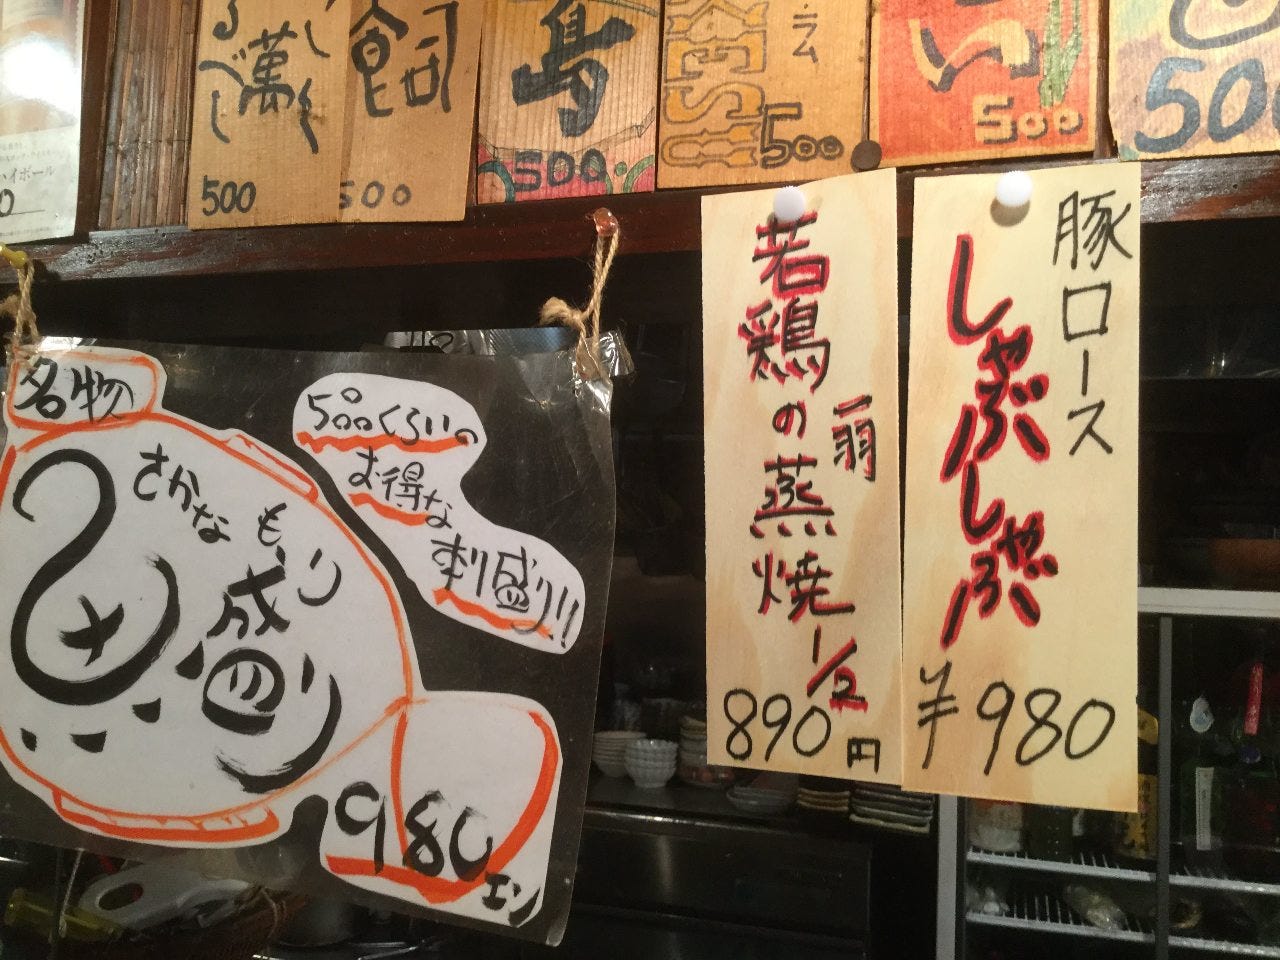 500
飼
500
島
500
ラム
500
い
500
50
イボール
名物
さかな
もり
盛り
500くらいの
お得な
刺盛り!!
980エン
若鶏の蒸焼1/2
一羽
890円
豚ロース
しゃぶしゃぶ
¥980